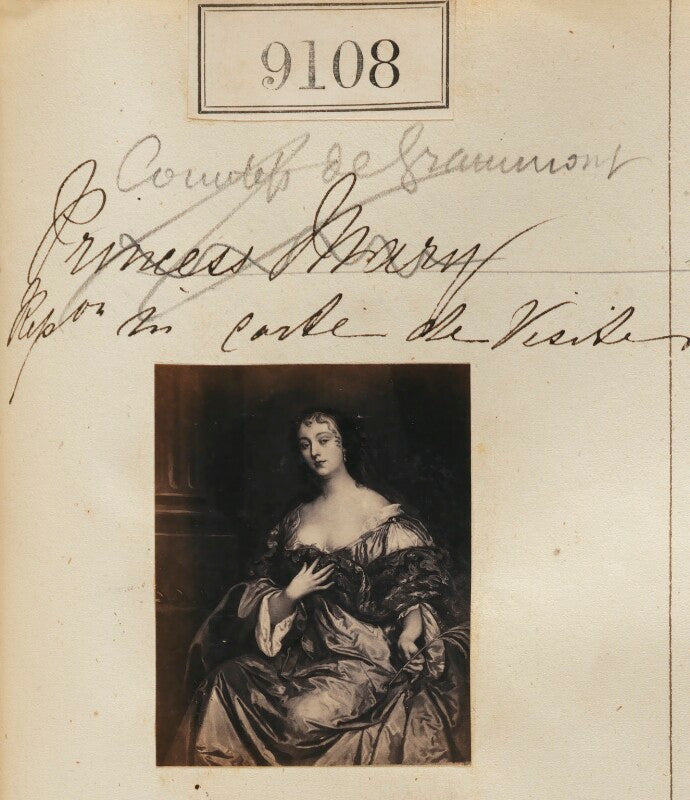 9108
Countess de Grammont
Princess Mary
Repon in carte de Visite